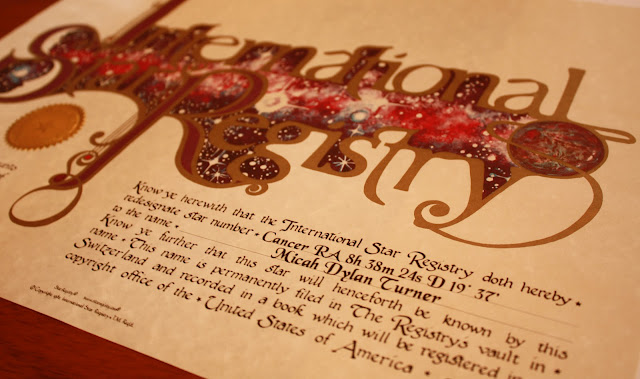 International
Star
Registry
Know ye herewith that the International Star Registry doth hereby •
redesignate star number • Cancer RA 8h 38m 24s D 19° 37'
to the name • Micah Dylan Turner
Know ye further that this star will henceforth be known by this
name • This name is permanently filed in The Registry's vault in •
Switzerland and recorded in a book which will be registered in
copyright office of the • United States of America •
© Copyright International Star Registry